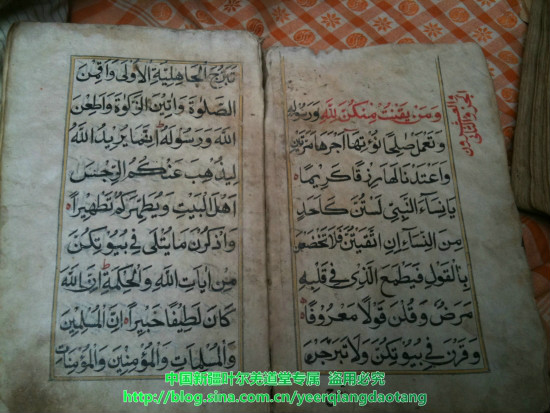 الجزو الثانى
وَمَنْ يَقْنُتْ مِنْكُنَّ لِلّٰهِ وَرَسُولِهِ
وَتَعْمَلْ صٰلِحًا نُؤْتِهَا اَجْرَهَا مَرَّتَيْنِ
وَاَعْتَدْنَا لَهَا رِزْقًا كَرِيمًا
يَانِسَاءَ النَّبِيِّ لَسْتُنَّ كَاَحَدٍ
مِنَ النِّسَاءِ اِنِ اتَّقَيْتُنَّ فَلَا تَخْضَعْنَ
بِالْقَوْلِ فَيَطْمَعَ الَّذِي فِي قَلْبِهِ
مَرَضٌ وَقُلْنَ قَوْلًا مَعْرُوفًا
وَقَرْنَ فِي بُيُوتِكُنَّ وَلَا تَبَرَّجْنَ
تَبَرُّجَ الْجَاهِلِيَّةِ الْاُولٰى وَاَقِمْنَ
الصَّلٰوةَ وَاٰتِينَ الزَّكٰوةَ وَاَطِعْنَ
اللّٰهَ وَرَسُولَهُ اِنَّمَا يُرِيدُ اللّٰهُ
لِيُذْهِبَ عَنْكُمُ الرِّجْسَ
اَهْلَ الْبَيْتِ وَيُطَهِّرَكُمْ تَطْهِيرًا
وَاذْكُرْنَ مَا يُتْلٰى فِي بُيُوتِكُنَّ
مِنْ اٰيَاتِ اللّٰهِ وَالْحِكْمَةِ اِنَّ اللّٰهَ
كَانَ لَطِيفًا خَبِيرًا اِنَّ الْمُسْلِمِينَ
وَالْمُسْلِمَاتِ وَالْمُؤْمِنِينَ وَالْمُؤْمِنَاتِ
中国新疆叶尔羌道堂专属 盗用必究
http://blog.sina.com.cn/yeerqiangdaotang